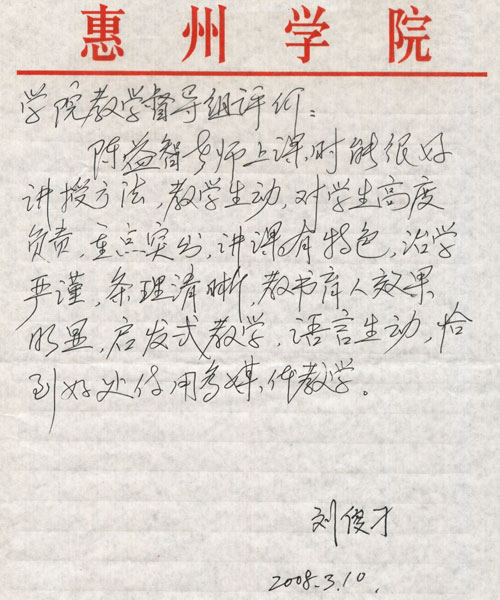 惠州学院
学院教学督导组评价：
陈益智老师上课时能很好
讲授方法，教学生动，对学生高度
负责，重点突出，讲课有特色，治学
严谨，条理清晰，教书育人效果
明显，启发式教学，语言生动，恰
到好处使用多媒体教学。
刘俊才
2008.3.10.